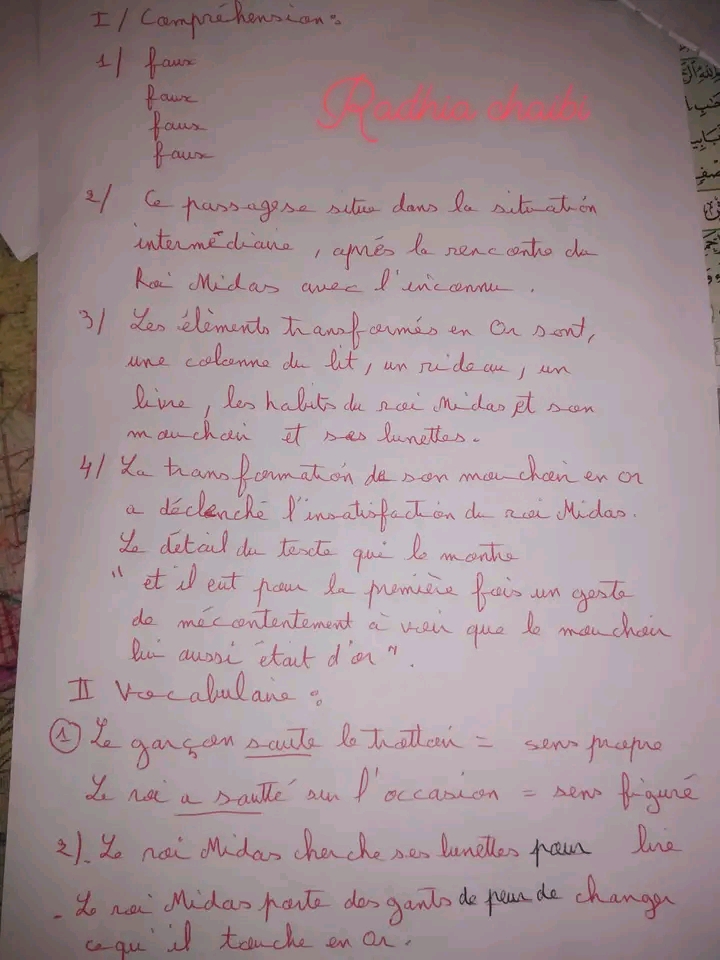 I / Compréhension :
1/ faux
faux
faux
faux
Radhia chaibi
2/ Ce passage se situe dans la situation
intermédiaire, après la rencontre du
Roi Midas avec l'inconnu.
3/ Les éléments transformés en Or sont,
une colonne du lit, un rideau, un
livre, les habits du roi Midas et son
mouchoir et ses lunettes.
4/ La transformation de son mouchoir en or
a déclenché l'insatisfaction du roi Midas.
Le détail du texte qui le montre
" et il eut pour la première fois un geste
de mécontentement à voir que le mouchoir
lui aussi était d'or ".
II Vocabulaire :
1 Le garçon saute le trottoir = sens propre
Le roi a sauté sur l'occasion = sens figuré
2). Le roi Midas cherche ses lunettes pour lire
- Le roi Midas porte des gants de peur de changer
ce qu'il touche en or.